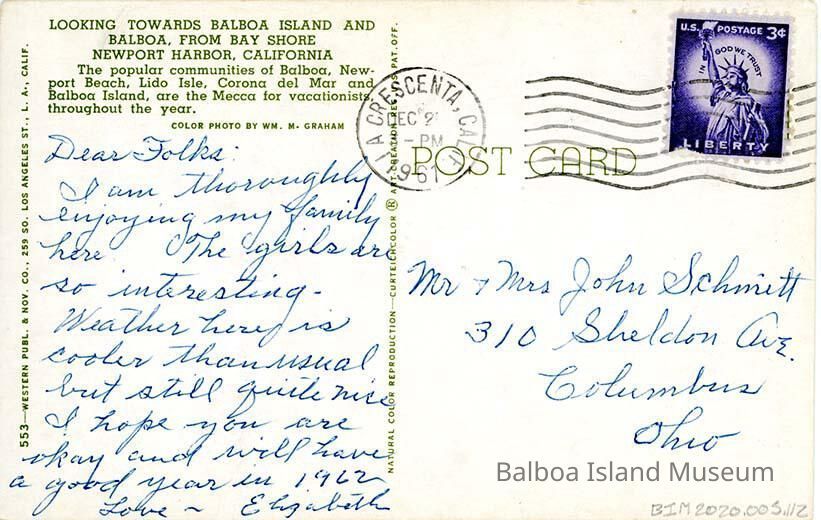 LOOKING TOWARDS BALBOA ISLAND AND
BALBOA, FROM BAY SHORE
NEWPORT HARBOR, CALIFORNIA
The popular communities of Balboa, New-
port Beach, Lido Isle, Corona del Mar and
Balboa Island, are the Mecca for vacationists
throughout the year.
COLOR PHOTO BY WM. M. GRAHAM
Dear Folks:
I am thoroughly
enjoying my family
here. The girls are
so interesting.
Weather here is
cooler than usual
but still quite nice
I hope you are
okay and will have
a good year in 1962
Love ~ Elizabeth
553—WESTERN PUBL. & NOV. CO., 259 SO. LOS ANGELES ST., L. A., CALIF.
NATURAL COLOR REPRODUCTION—CURTEICHCOLOR ® ART-CREATION U.S. PAT. OFF.
LA CRESCENTA, CALIF.
DEC 2
-PM
1961
POST CARD
U.S. POSTAGE 3¢
IN GOD WE TRUST
LIBERTY
Mr & Mrs John Schmitt
310 Sheldon Ave.
Columbus
Ohio
Balboa Island Museum
BIM2020.003.112